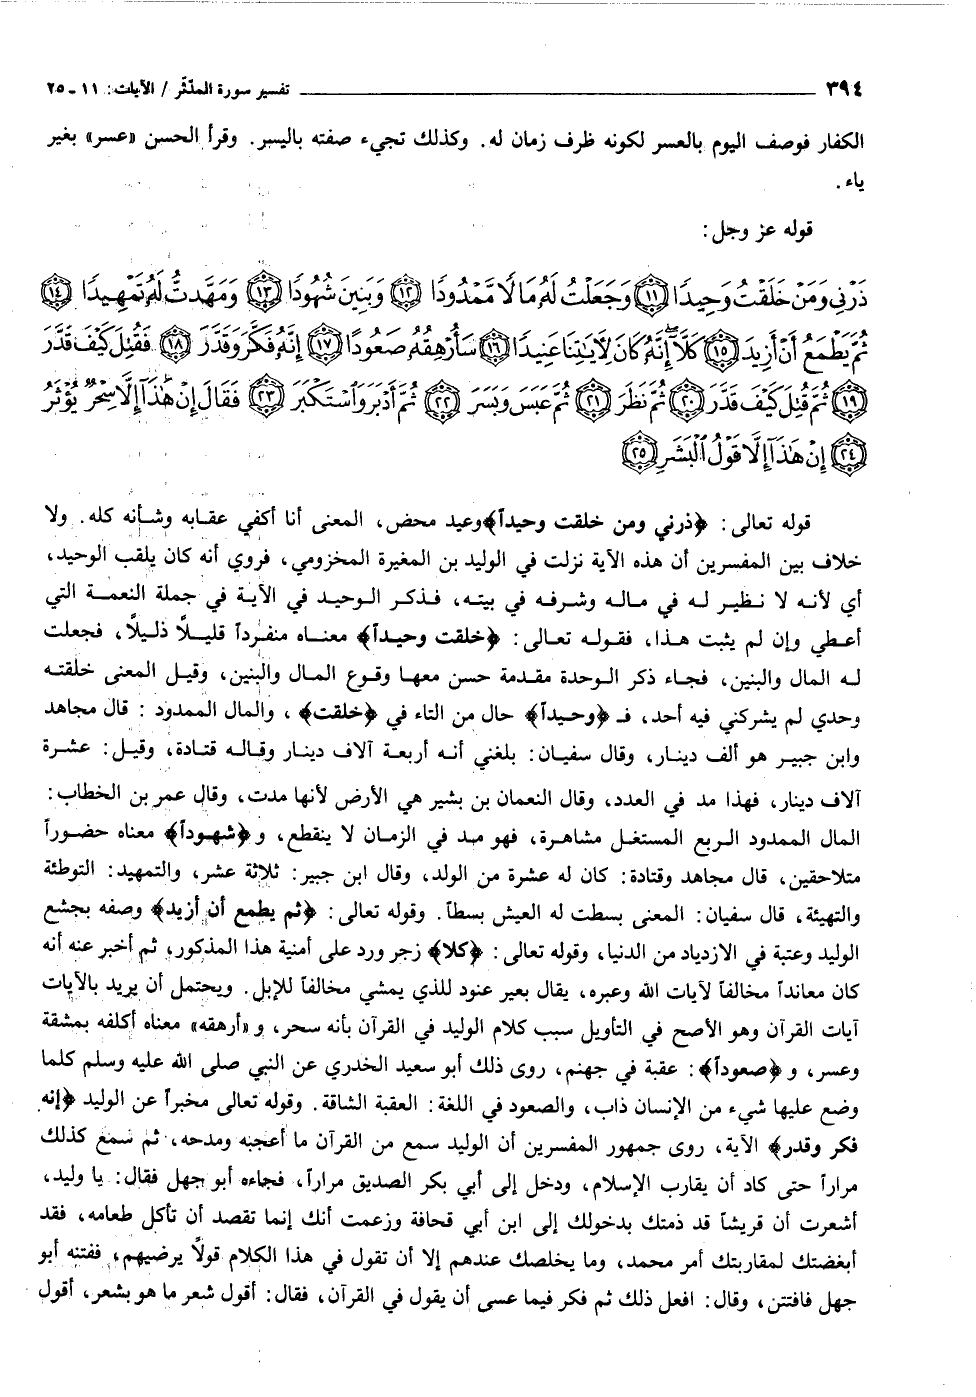 ٣٩٤ ــــــــــــــــ تفسير سورة المدّثّر / الآيات: ١١ ـ ٢٥
الكفار فوصف اليوم بالعسر لكونه ظرف زمان له. وكذلك تجيء صفته باليسر. وقرأ الحسن «عسر» بغير
ياء.
قوله عز وجل:
ذَرْنِي وَمَنْ خَلَقْتُ وَحِيدًا ۝١١ وَجَعَلْتُ لَهُ مَالًا مَّمْدُودًا ۝١٢ وَبَنِينَ شُهُودًا ۝١٣ وَمَهَّدتُّ لَهُ تَمْهِيدًا ۝١٤
ثُمَّ يَطْمَعُ أَنْ أَزِيدَ ۝١٥ كَلَّا إِنَّهُ كَانَ لِآيَاتِنَا عَنِيدًا ۝١٦ سَأُرْهِقُهُ صَعُودًا ۝١٧ إِنَّهُ فَكَّرَ وَقَدَّرَ ۝١٨ فَقُتِلَ كَيْفَ قَدَّرَ
۝١٩ ثُمَّ قُتِلَ كَيْفَ قَدَّرَ ۝٢٠ ثُمَّ نَظَرَ ۝٢١ ثُمَّ عَبَسَ وَبَسَرَ ۝٢٢ ثُمَّ أَدْبَرَ وَاسْتَكْبَرَ ۝٢٣ فَقَالَ إِنْ هَٰذَا إِلَّا سِحْرٌ يُؤْثَرُ
۝٢٤ إِنْ هَٰذَا إِلَّا قَوْلُ الْبَشَرِ ۝٢٥
قوله تعالى: ﴿ذرني ومن خلقت وحيداً﴾وعيد محض، المعنى أنا أكفي عقابه وشأنه كله. ولا
خلاف بين المفسرين أن هذه الآية نزلت في الوليد بن المغيرة المخزومي، فروي أنه كان يلقب الوحيد،
أي لأنه لا نظير له في ماله وشرفه في بيته، فذكر الوحيد في الآية في جملة النعمة التي
أعطي وإن لم يثبت هذا، فقوله تعالى: ﴿خلقت وحيداً﴾ معناه منفرداً قليلاً ذليلاً، فجعلت
له المال والبنين، فجاء ذكر الوحدة مقدمة حسن معها وقوع المال والبنين، وقيل المعنى خلقته
وحدي لم يشركني فيه أحد، فـ ﴿وحيداً﴾ حال من التاء في ﴿خلقت﴾، والمال الممدود: قال مجاهد
وابن جبير هو ألف دينار، وقال سفيان: بلغني أنه أربعة آلاف دينار وقاله قتادة، وقيل: عشرة
آلاف دينار، فهذا مد في العدد، وقال النعمان بن بشير هي الأرض لأنها مدت، وقال عمر بن الخطاب:
المال الممدود الربع المستغل مشاهرة، فهو مد في الزمان لا ينقطع، و﴿شهوداً﴾ معناه حضوراً
متلاحقين، قال مجاهد وقتادة: كان له عشرة من الولد، وقال ابن جبير: ثلاثة عشر، والتمهيد: التوطئة
والتهيئة، قال سفيان: المعنى بسطت له العيش بسطاً. وقوله تعالى: ﴿ثم يطمع أن أزيد﴾ وصفه بجشع
الوليد وعتبة في الازدياد من الدنيا، وقوله تعالى: ﴿كلا﴾ زجر ورد على أمنية هذا المذكور، ثم أخبر عنه أنه
كان معانداً مخالفاً لآيات الله وعبره، يقال بعير عنود للذي يمشي مخالفاً للإبل. ويحتمل أن يريد بالآيات
آيات القرآن وهو الأصح في التأويل سبب كلام الوليد في القرآن بأنه سحر، و«أرهقه» معناه أكلفه بمشقة
وعسر، و﴿صعوداً﴾: عقبة في جهنم، روى ذلك أبو سعيد الخدري عن النبي صلى الله عليه وسلم كلما
وضع عليها شيء من الإنسان ذاب، والصعود في اللغة: العقبة الشاقة. وقوله تعالى مخبراً عن الوليد ﴿إنه
فكر وقدر﴾ الآية، روى جمهور المفسرين أن الوليد سمع من القرآن ما أعجبه ومدحه، ثم سمع كذلك
مراراً حتى كاد أن يقارب الإسلام، ودخل إلى أبي بكر الصديق مراراً، فجاءه أبو جهل فقال: يا وليد،
أشعرت أن قريشاً قد ذمتك بدخولك إلى ابن أبي قحافة وزعمت أنك إنما تقصد أن تأكل طعامه، فقد
أبغضتك لمقاربتك أمر محمد، وما يخلصك عندهم إلا أن تقول في هذا الكلام قولاً يرضيهم، ففتنه أبو
جهل فافتتن، وقال: افعل ذلك ثم فكر فيما عسى أن يقول في القرآن، فقال: أقول شعر ما هو بشعر، أقول